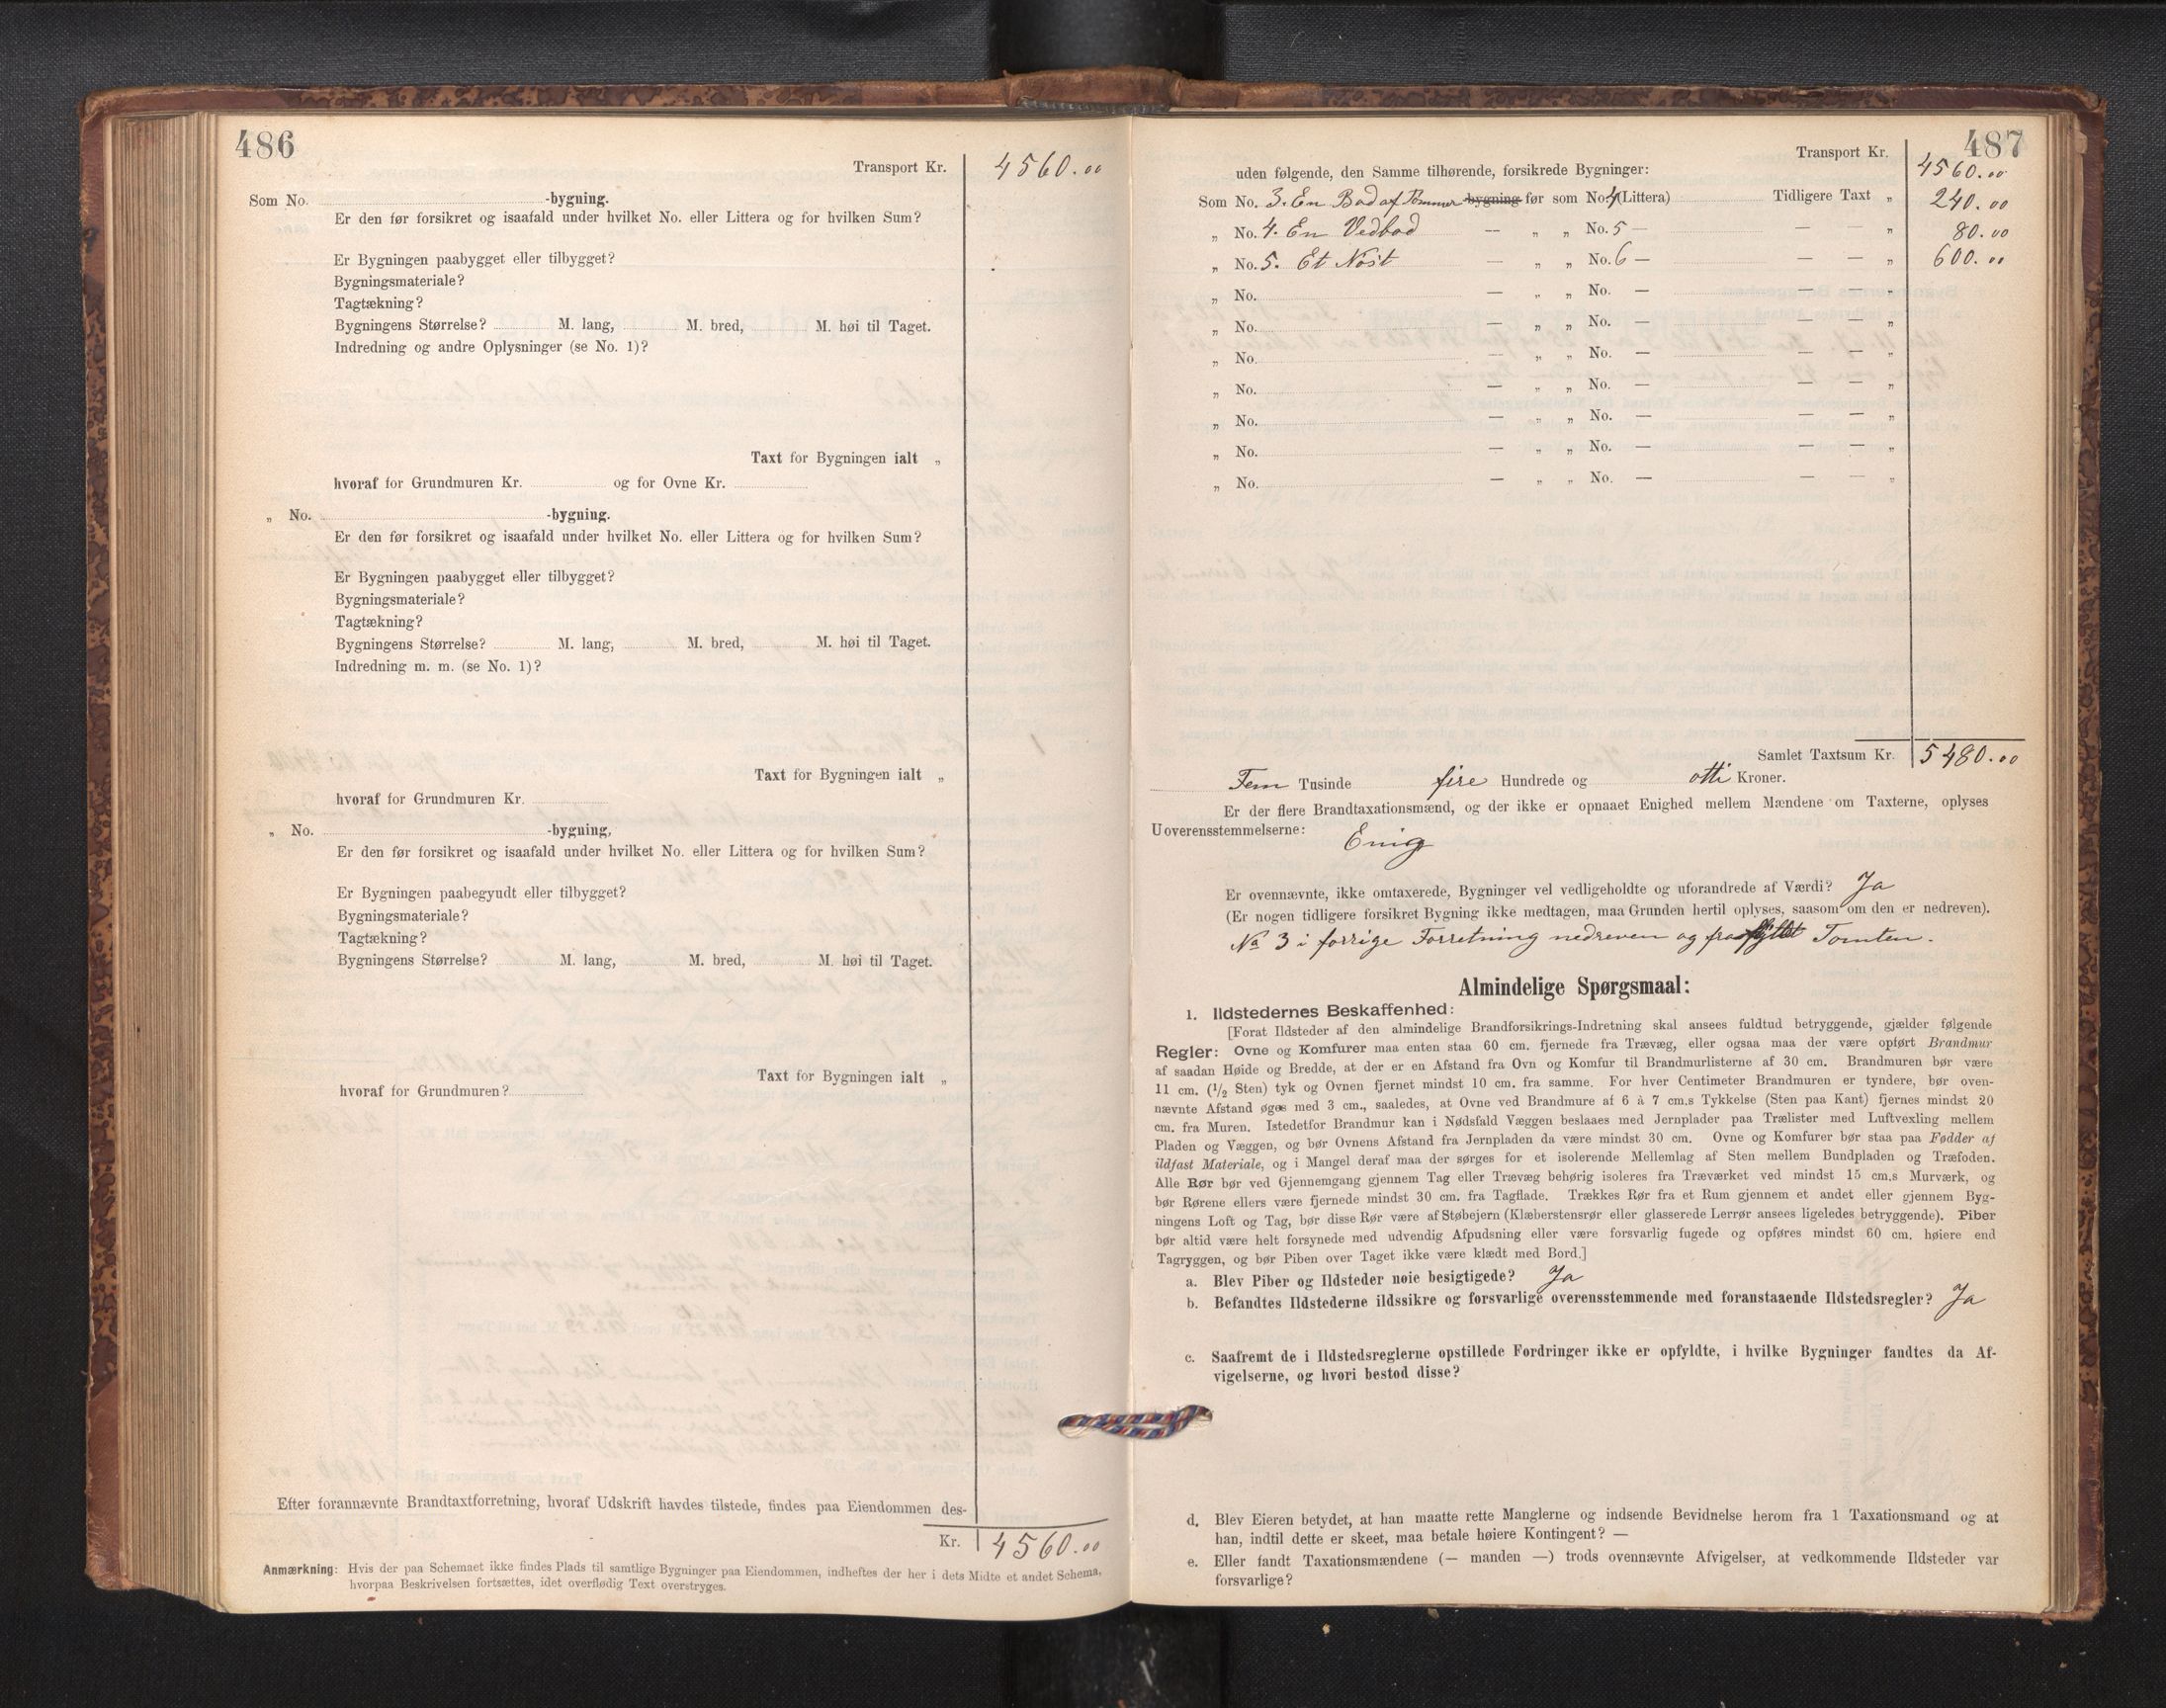 486
Transport Kr. 4560.00
Som No. -bygning.
Er den før forsikret og isaafald under hvilket No. eller Littera og for hvilken Sum?
Er Bygningen paabygget eller tilbygget?
Bygningsmateriale?
Tagtækning?
Bygningens Størrelse? M. lang, M. bred, M. høi til Taget.
Indredning og andre Oplysninger (se No. 1)?
Taxt for Bygningen ialt „
hvoraf for Grundmuren Kr. og for Ovne Kr.
„ No. -bygning.
Er den før forsikret og isaafald under hvilket No. eller Littera og for hvilken Sum?
Er Bygningen paabygget eller tilbygget?
Bygningsmateriale?
Tagtækning?
Bygningens Størrelse? M. lang, M. bred, M. høi til Taget.
Indredning m. m. (se No. 1)?
Taxt for Bygningen ialt „
hvoraf for Grundmuren Kr.
„ No. -bygning,
Er den før forsikret og isaafald under hvilket No. eller Littera og for hvilken Sum?
Er Bygningen paabegyudt eller tilbygget?
Bygningsmateriale?
Tagtækning?
Bygningens Størrelse? M. lang, M. bred, M. høi til Taget.
Taxt for Bygningen ialt „
hvoraf for Grundmuren?
Efter forannævnte Brandtaxtforretning, hvoraf Udskrift havdes tilstede, findes paa Eiendommen des-
Kr. 4560.00
Anmærkning: Hvis der paa Schemaet ikke findes Plads til samtlige Bygninger paa Eiendommen, indheftes der her i dets Midte et andet Schema,
hvorpaa Beskrivelsen fortsættes, idet overflødig Text overstryges.
487
Transport Kr. 4560.00
uden følgende, den Samme tilhørende, forsikrede Bygninger:
Som No. 3. En Bod af Tømmer bygning før som No. 4 (Littera) Tidligere Taxt „ 240.00
„ No. 4. En Vedbod — „ „ No. 5 — — — „ 80.00
„ No. 5. Et Nøst — „ „ No. 6 — — — „ 600.00
„ No. — „ „ No. — — — „
„ No. — „ „ No. — — — „
„ No. — „ „ No. — — — „
„ No. — „ „ No. — — — „
„ No. — „ „ No. — — — „
„ No. — „ „ No. — — — „
„ No. — „ „ No. — — — „
Samlet Taxtsum Kr. 5480.00
Fem Tusinde fire Hundrede og otti Kroner.
Er der flere Brandtaxationsmænd, og der ikke er opnaaet Enighed mellem Mændene om Taxterne, oplyses
Uoverensstemmelserne: Enig
Er ovennævnte, ikke omtaxerede, Bygninger vel vedligeholdte og uforandrede af Værdi? Ja
(Er nogen tidligere forsikret Bygning ikke medtagen, maa Grunden hertil oplyses, saasom om den er nedreven).
No 3 i forrige Forretning nedreven og fraflyttet Tomten.
Almindelige Spørgsmaal:
1. Ildstedernes Beskaffenhed:
[Forat Ildsteder af den almindelige Brandforsikrings-Indretning skal ansees fuldtud betryggende, gjælder følgende
Regler: Ovne og Komfurer maa enten staa 60 cm. fjernede fra Trævæg, eller ogsaa maa der være opført Brandmur
af saadan Høide og Bredde, at der er en Afstand fra Ovn og Komfur til Brandmurlisterne af 30 cm. Brandmuren bør være
11 cm. (1/2 Sten) tyk og Ovnen fjernet mindst 10 cm. fra samme. For hver Centimeter Brandmuren er tyndere, bør oven-
nævnte Afstand øges med 3 cm., saaledes, at Ovne ved Brandmure af 6 à 7 cm.s Tykkelse (Sten paa Kant) fjernes mindst 20
cm. fra Muren. Istedetfor Brandmur kan i Nødsfald Væggen beslaaes med Jernplader paa Trælister med Luftvexling mellem
Pladen og Væggen, og bør Ovnens Afstand fra Jernpladen da være mindst 30 cm. Ovne og Komfurer bør staa paa Fødder af
ildfast Materiale, og i Mangel deraf maa der sørges for et isolerende Mellemlag af Sten mellem Bundpladen og Træfoden.
Alle Rør bør ved Gjennemgang gjennem Tag eller Trævæg behørig isoleres fra Træværket ved mindst 15 cm.s Murværk, og
bør Rørene ellers være fjernede mindst 30 cm. fra Tagflade. Trækkes Rør fra et Rum gjennem et andet eller gjennem Byg-
ningens Loft og Tag, bør disse Rør være af Støbejern (Klæberstensrør eller glasserede Lerrør ansees ligeledes betryggende). Piber
bør altid være helt forsynede med udvendig Afpudsning eller være forsvarlig fugede og opføres mindst 60 cm. høiere end
Tagryggen, og bør Piben over Taget ikke være klædt med Bord.]
a. Blev Piber og Ildsteder nøie besigtigede? Ja
b. Befandtes Ildstederne ildssikre og forsvarlige overensstemmende med foranstaaende Ildstedsregler? Ja
c. Saafremt de i Ildstedsreglerne opstillede Fordringer ikke er opfyldte, i hvilke Bygninger fandtes da Af-
vigelserne, og hvori bestod disse?
d. Blev Eieren betydet, at han maatte rette Manglerne og indsende Bevidnelse herom fra 1 Taxationsmand og at
han, indtil dette er skeet, maa betale høiere Kontingent? —
e. Eller fandt Taxationsmændene (— manden —) trods ovennævnte Afvigelser, at vedkommende Ildsteder var
forsvarlige?